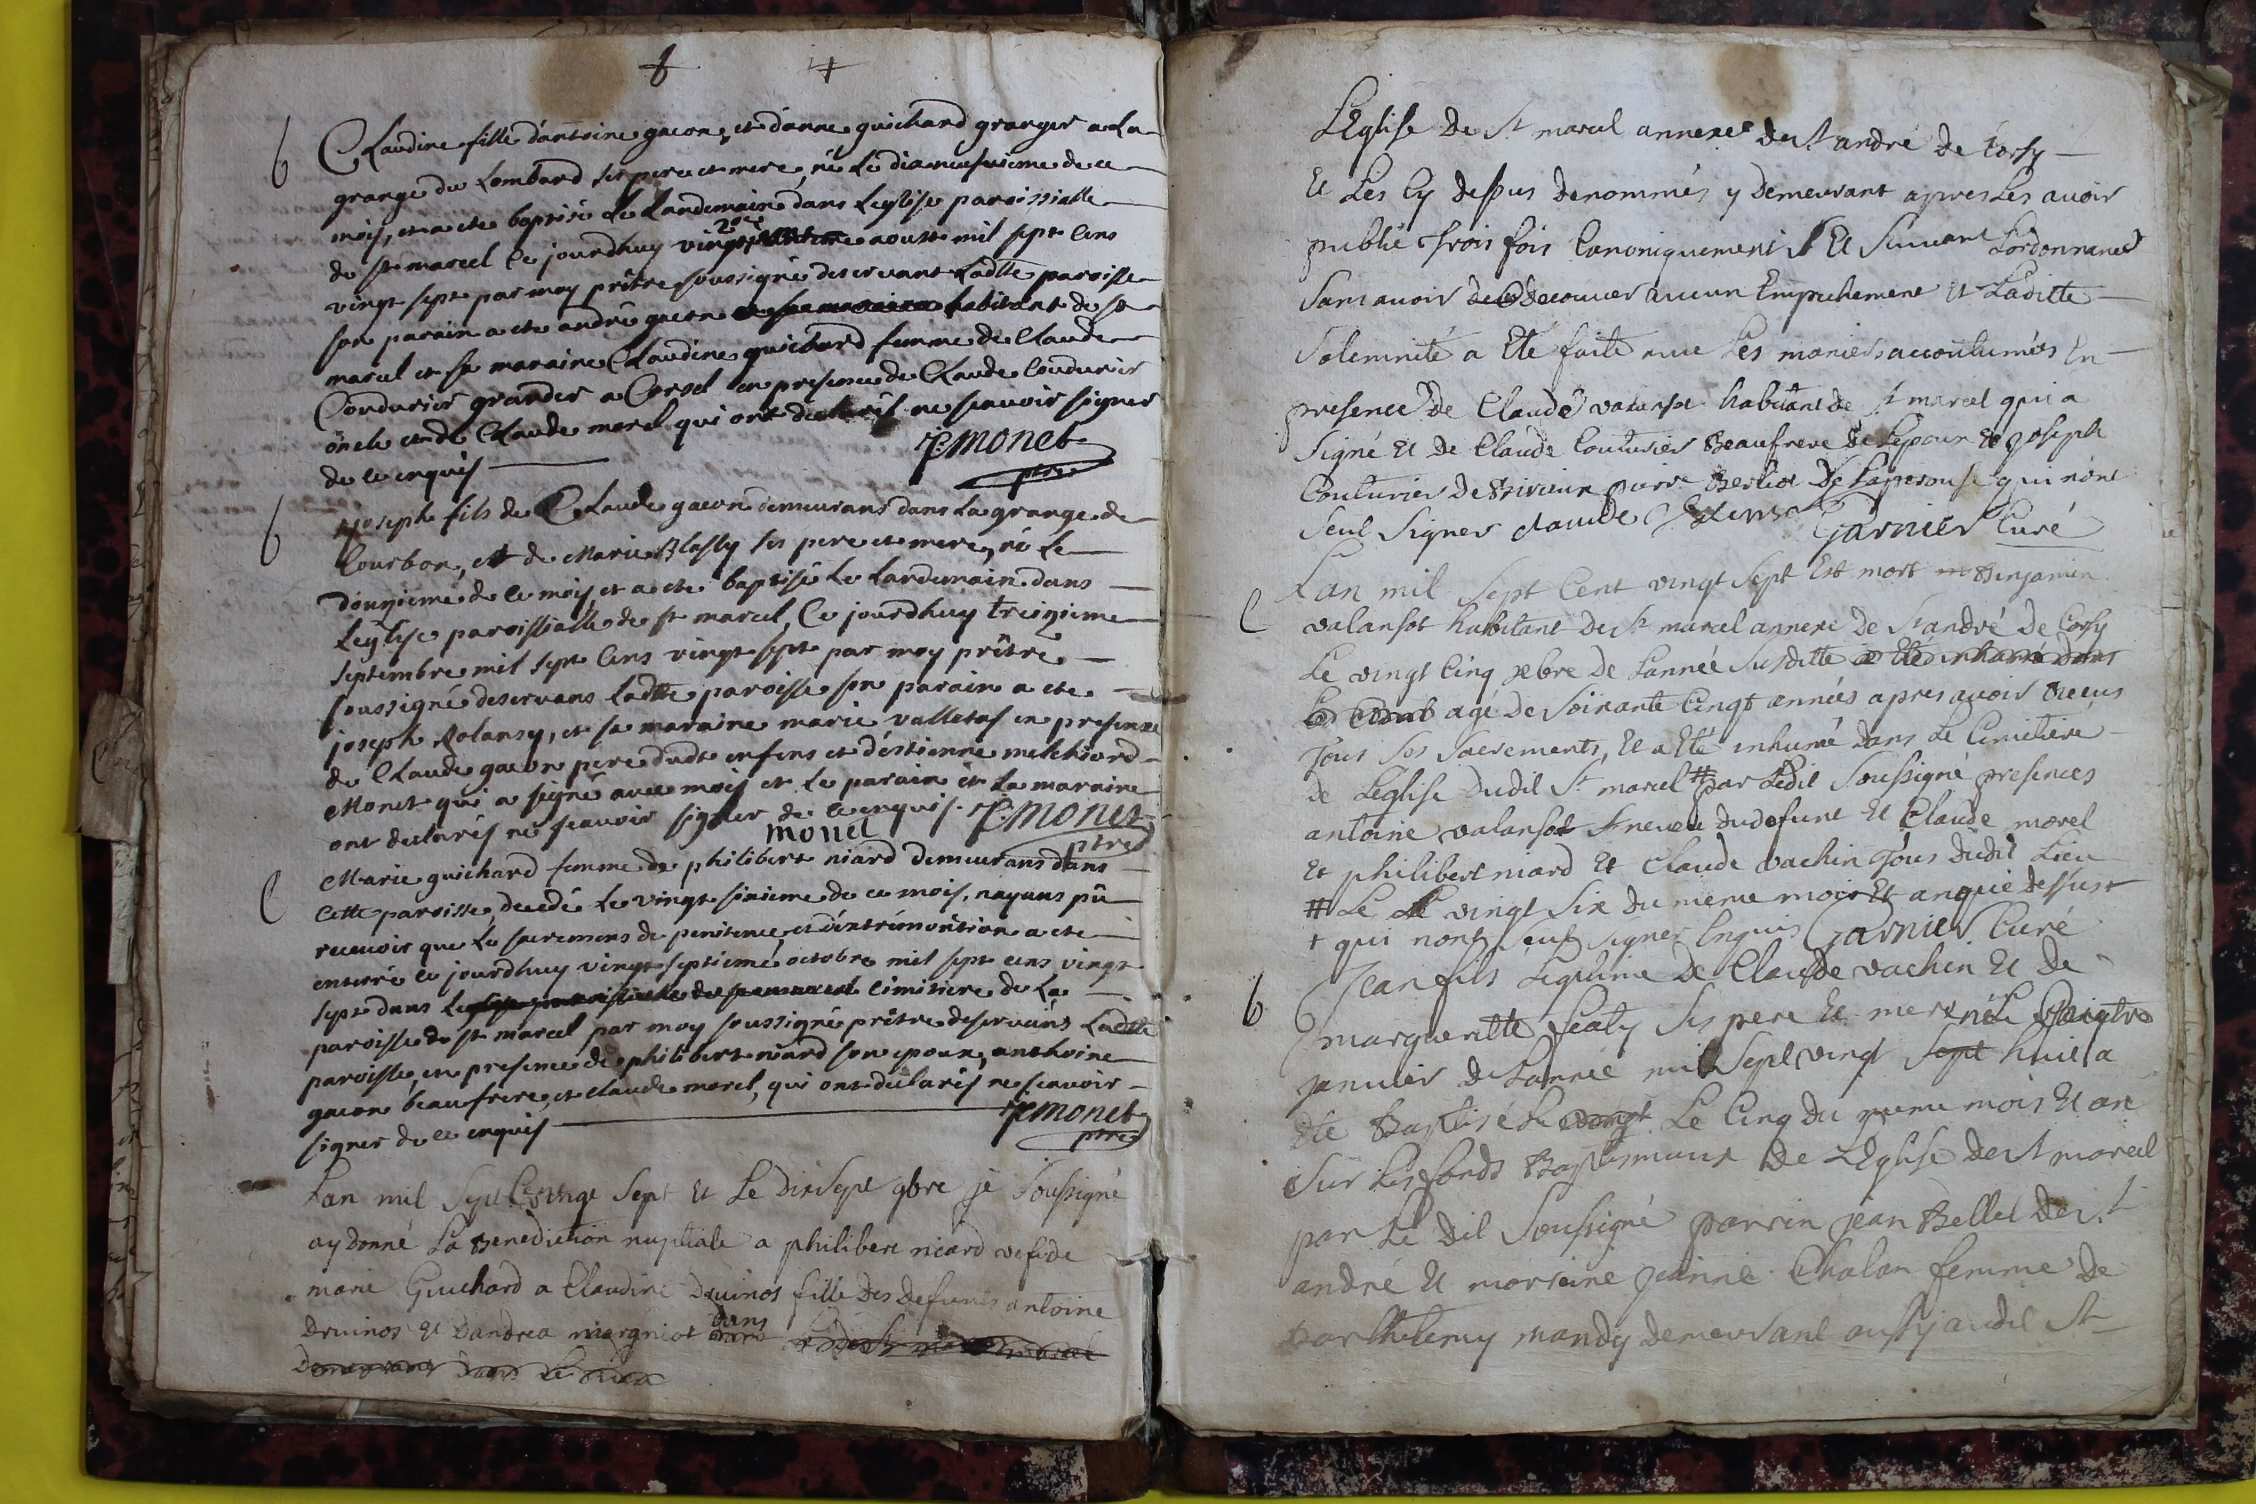 b
Claudine fille d'antoine gacon, et d'anne guichard granger a La
grange du Lombard ses pere et mere, né Le dixneufvieme de ce
mois, et a ete baptisé Le Landemain dans Leglise paroissialle
de st marcel Ce jourdhuy vingt aoust mil sept Cens
vingt sept par moy prêtre soussigné deservant Ladtte paroisse
son parain a ete andré gacon habitant de st
marcel et sa maraine Claudine guichard femme de Claude
Condurier granger a en presence de Claude Condurier
oncle et de Claude morel qui ont declarés ne sçavoir signer
de ce enquis
monet ptre
b
joseph fils de Claude gacon demeurans dans La grange de
Courbon, et de Marie Blassy ses pere et mere, né Le
douzieme de ce mois, et a ete baptisé Le Landemain dans
Leglise paroissialle de st marcel, Ce jourdhuy treizieme
septembre mil sept Cens vingt sept par moy prêtre
soussigné deservans Ladtte paroisse son parain a ete
joseph Rolansy, et sa maraine marie valletas en presence
de Claude gacon pere dudt enfens et d'estienne melchiord
Monet qui a signé avec moy et Le parain et La maraine
ont declarés ne sçavoir signer de ce enquis monet ptre
monet
C
Marie guichard femme de philibert niard demeurans dans
Cette paroisse, decedé Le vingt sixieme de ce mois, nayans pû
recevoir que Le sacremens de penitence, et d'extrémonction a ete
enterré Ce jourdhuy vingt septieme octobre mil sept cens vingt
sept dans Le cimitiere de La
paroisse de st marcel par moy soussigné prêtre deservans Ladtte
paroisse, en presence de philibert niard son epoux, anthoine
gacon beaufrere, et claude morel, qui ont declarés ne scavoir
signer de ce enquis
monet ptre
Lan mil Sept Cent vingt Sept et Le Dix Sept 9bre je Soussigné
ay donné La Benediction nuptiale a philibert niard vef de
marie Guichard a Claudine Druinos fille des defunts antoine
Druinos et Dandrea mergniot dans
Demeurans dans Le
LEglise De St marcel annexe de St andré de Corsy
Et Les Cy dessus denommés y Demeurant apres Les avoir
publié trois fois Canoniquement Et Suivant Lordonnance
Sans avoir decouver aucun Empechement et Laditte
Solemnité a Ete faite avec Les manieres accoutumées En
presence de Claude valansot habitant de St marcel qui a
Signé et De Claude Couturier Beaufrere de Lepoux et joseph
Couturier de Birieux pierre Berliet De Laperouse qui nont
Seut Signer claude valensot Garnier Curé
C
Lan mil Sept Cent vingt Sept Est mort Benjamin
valansot habitant De St marcel annexe de St andré De Corsy
Le vingt Cinq xbre de Lannée Susditte
agé de Soixante Cinqt années apres avoir Recus
Tous Ses Sacrements, Et a Eté inhumé dans Le Cimitiere
de Leglise dudit St marcel # par Ledit Soussigné presences
antoine valansot neveu dudefunt et Claude morel
Et philibert niard Et Claude vachin Tous dudit Lieu
# Le vingt Six du meme mois Et an que dessus +
+ qui nont Seut Signer Enquis Garnier Curé
b
Jean fils Legitime De Claude vachin Et De
margueritte Sealy Ses pere Et mere né Le
janvier de Lannée mil Sept vingt Sept huit a
Ete Baptisé Le Cinq du meme mois Et an
Sur Les fonds Baptismaux de LEglise de St marcel
par Le dit Soussigné parrin jean Bellet de St
andré Et marreine jeanne Chalan femme de
barthelemy mandy demeurant aussy audit St